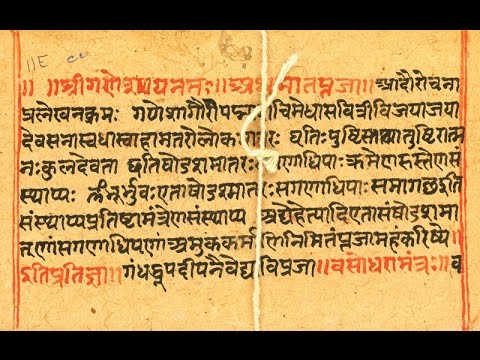 ॥ ॥ श्रीगणेशायनमः॥ अथ मातृपूजा॥ आदौरोचना
प्रलेखनक्रमः गणेशगौरीपद्मा मेधासावित्रीविजयाजया
देवसेनास्वधास्वाहामातरोलोकमातरः धृतिःपुष्टिस्तथातुष्टिरात्म
नःकुलदेवता इतिषोडशमातरः गणाधिपाः क्रमेण
स्थाप्यः भूर्भुवःएताषोडशमातरः सगणाधिपाः समागछ इति
संस्थाप्यप्रतिष्टामंत्रेणसंस्थाप्य अद्येहेत्यादिएतासांषोडशमा
तॄणांसगणाधिपाणां अमुककर्म निमितंपूजामहंकरिष्ये
इतिप्रतिज्ञा॥ गंधपुष्पधूपदीपनैवेद्य पूजा॥ वसोधारामंत्रः॥ व